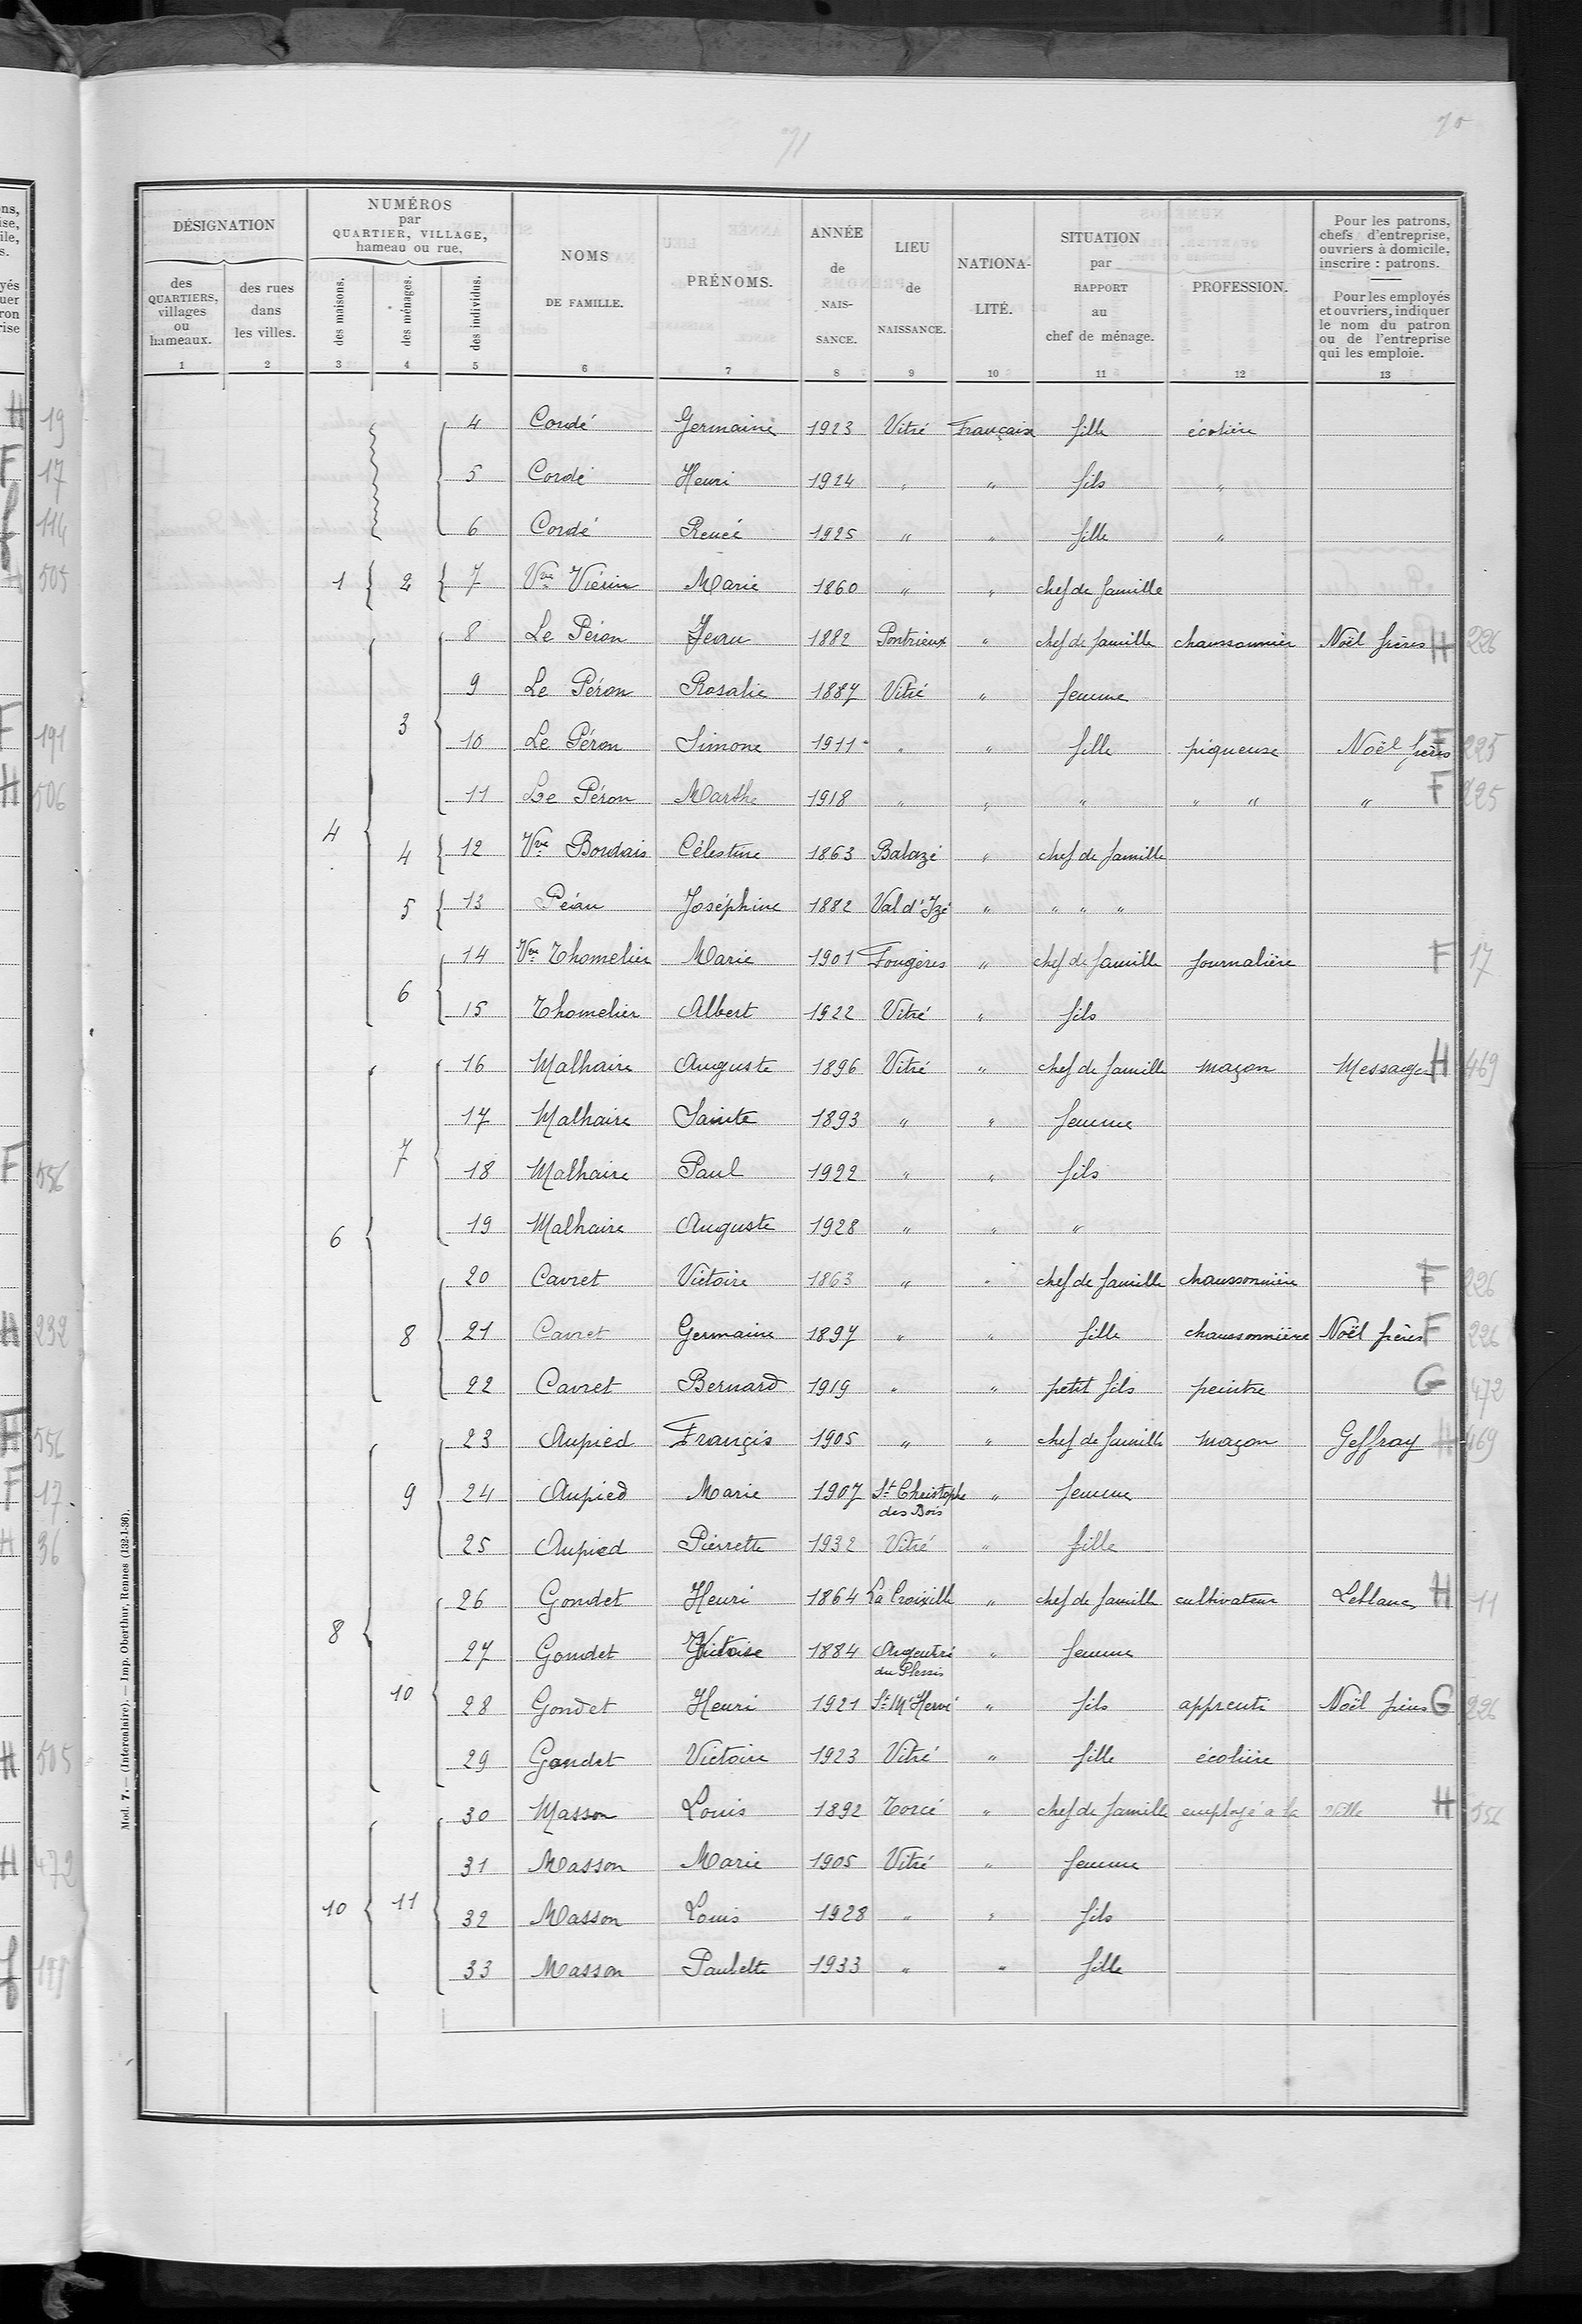 71
70
DÉSIGNATION
NUMÉROS
par
QUARTIER, VILLAGE,
hameau ou rue.
des
QUARTIERS,
villages
ou
hameaux.
des rues
dans
les villes.
des maisons.
des ménages.
des individus.
NOMS
DE FAMILLE.
PRÉNOMS.
ANNÉE
de
NAIS-
SANCE.
LIEU
de
NAISSANCE.
NATIONA-
LITÉ.
SITUATION
par
RAPPORT
au
chef de ménage.
PROFESSION.
Pour les patrons,
chefs d'entreprise,
ouvriers à domicile,
inscrire : patrons.
Pour les employés
et ouvriers, indiquer
le nom du patron
ou de l'entreprise
qui les emploie.
1 2 3 4 5 6 7 8 9 10 11 12 13
4 Cordé Germaine 1923 Vitré Française fille écolière
5 Cordé Henri 1924 " " fils "
6 Cordé Renée 1925 " " fille "
1 2 7 Vve Viérin Marie 1860 " " chef de famille
8 Le Péron Jean 1882 Pontrieux " chef de famille chaussonnier Noël frères H 226
9 Le Péron Rosalie 1887 Vitré " femme
3
10 Le Péron Simone 1911 " " fille piqueuse Noël frères F 225
11 Le Péron Marthe 1918 " " " " " " F 225
4
4 12 Vve Bordais Célestine 1863 Balazé " chef de famille
5 13 Péan Joséphine 1882 Val d'Izé " " " "
14 Vve Thomelier Marie 1901 Fougères " chef de famille journalière F 17
6
15 Thomelier Albert 1922 Vitré " fils
16 Malhaire Auguste 1896 Vitré " chef de famille maçon Message H 469
17 Malhaire Sainte 1893 " " femme
7
18 Malhaire Paul 1922 " " fils
19 Malhaire Auguste 1928 " " "
6
20 Cavret Victoire 1863 " " chef de famille chaussonnière F 226
8 21 Cavret Germaine 1897 " " fille chaussonnière Noël frères F 226
22 Cavret Bernard 1919 " " petit fils peintre G 472
23 Aupied Françis 1905 " " chef de famille maçon Geffray H 469
9 24 Aupied Marie 1907 St Christophe des Bois " femme
25 Aupied Pierrette 1932 Vitré " fille
26 Gondet Henri 1864 La Croixille " chef de famille cultivateur Leblanc H 11
8
27 Gondet Victoire 1884 Argentré du Plessis " femme
10
28 Gondet Henri 1921 St M'Hervé " fils apprenti Noël frères G 226
29 Gondet Victoire 1923 Vitré " fille écolière
30 Masson Louis 1892 Torcé " chef de famille employé a la ville H 556
31 Masson Marie 1905 Vitré " femme
10 11
32 Masson Louis 1928 " " fils
33 Masson Paulette 1933 " " fille
Mod. 7. — (Intercalaire). — Imp. Oberthur, Rennes (132-1-36).